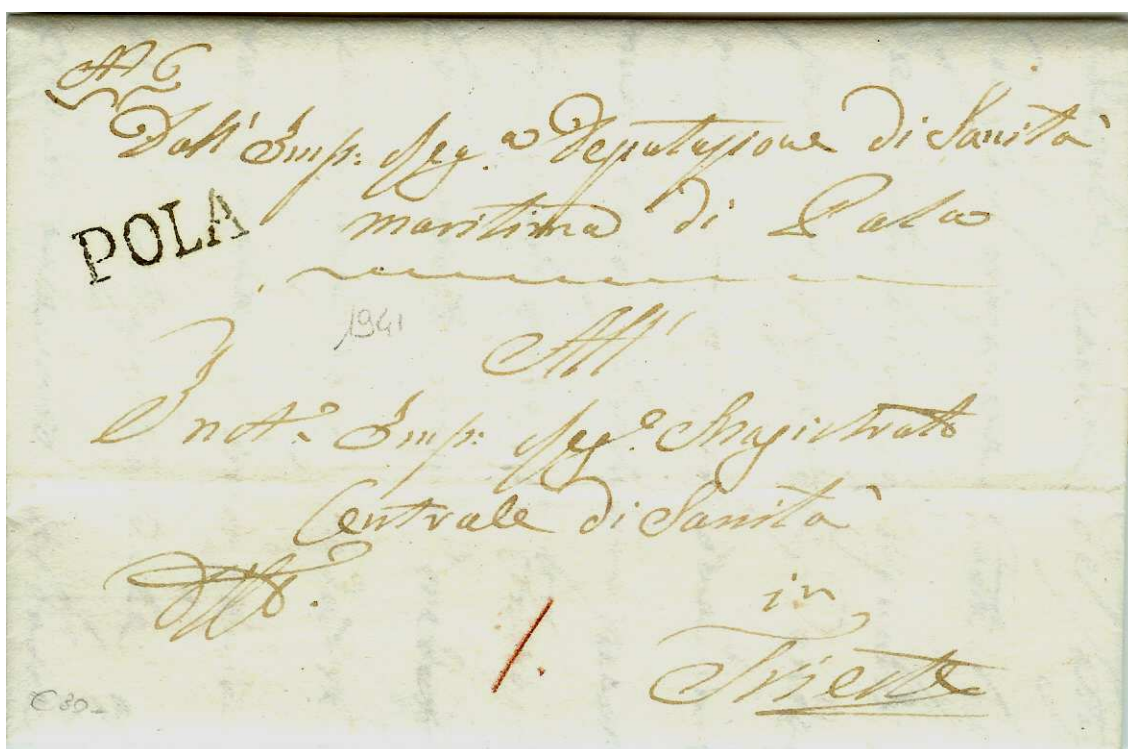 N 6
Dall' Imp. Reg.ª Deputazione di Sanità
POLA
maritima di Pola
1941
All'
Inct.º Imp: Reg.º Magistrato
Centrale di Sanità
in
1.
Trieste
€ 30-